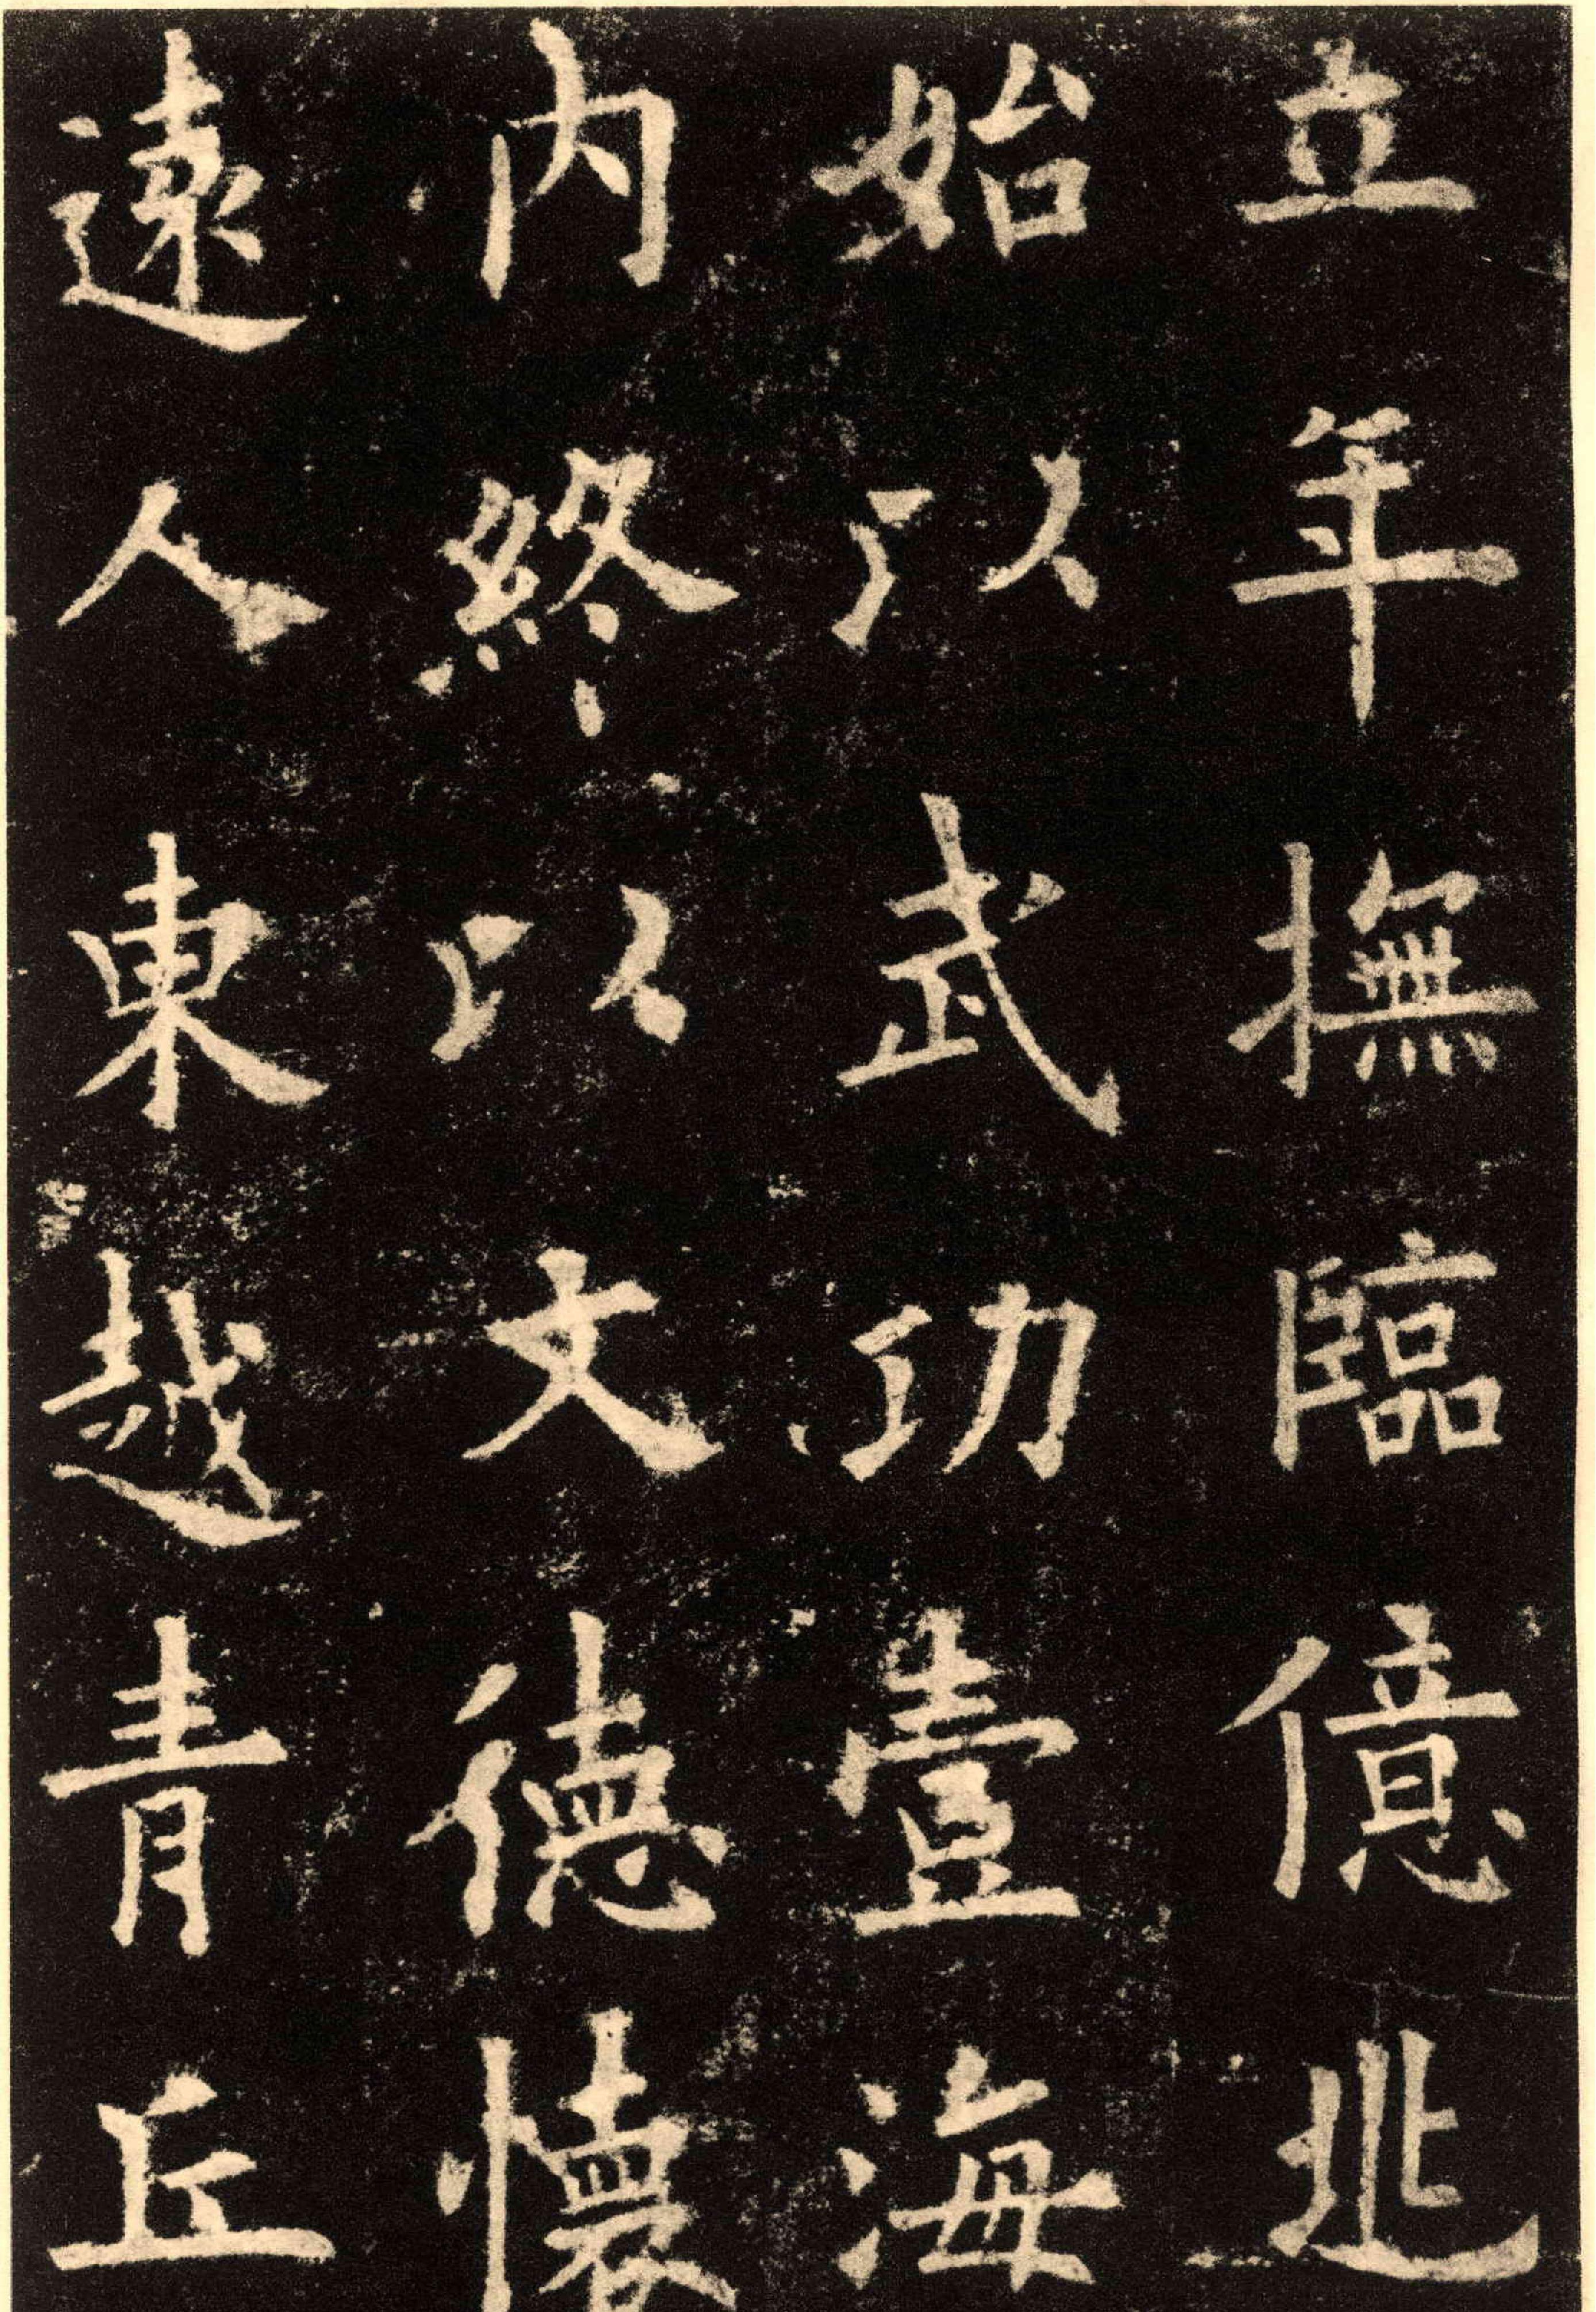 立年撫臨億兆
始以武功壹海
内終以文德懷
遠人東越青丘